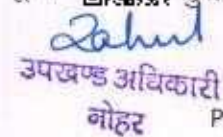 Rahul
उपखण्ड अधिकारी
नोहर
P